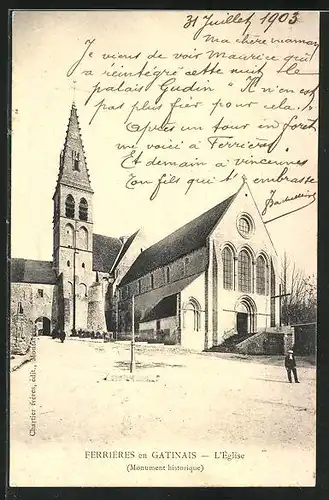 31 Juillet 1903
ma chère maman
Je viens de voir Maurice qui
a réintégré cette nuit "le
palais Gudin" Il n'en est
pas plus fier pour cela.
Après un tour en forêt
me voici à Ferrières
Et demain à Vincennes
Ton fils qui t'embrasse
Chartier frères, édit.,
FERRIÈRES en GATINAIS — L'Église
(Monument historique)